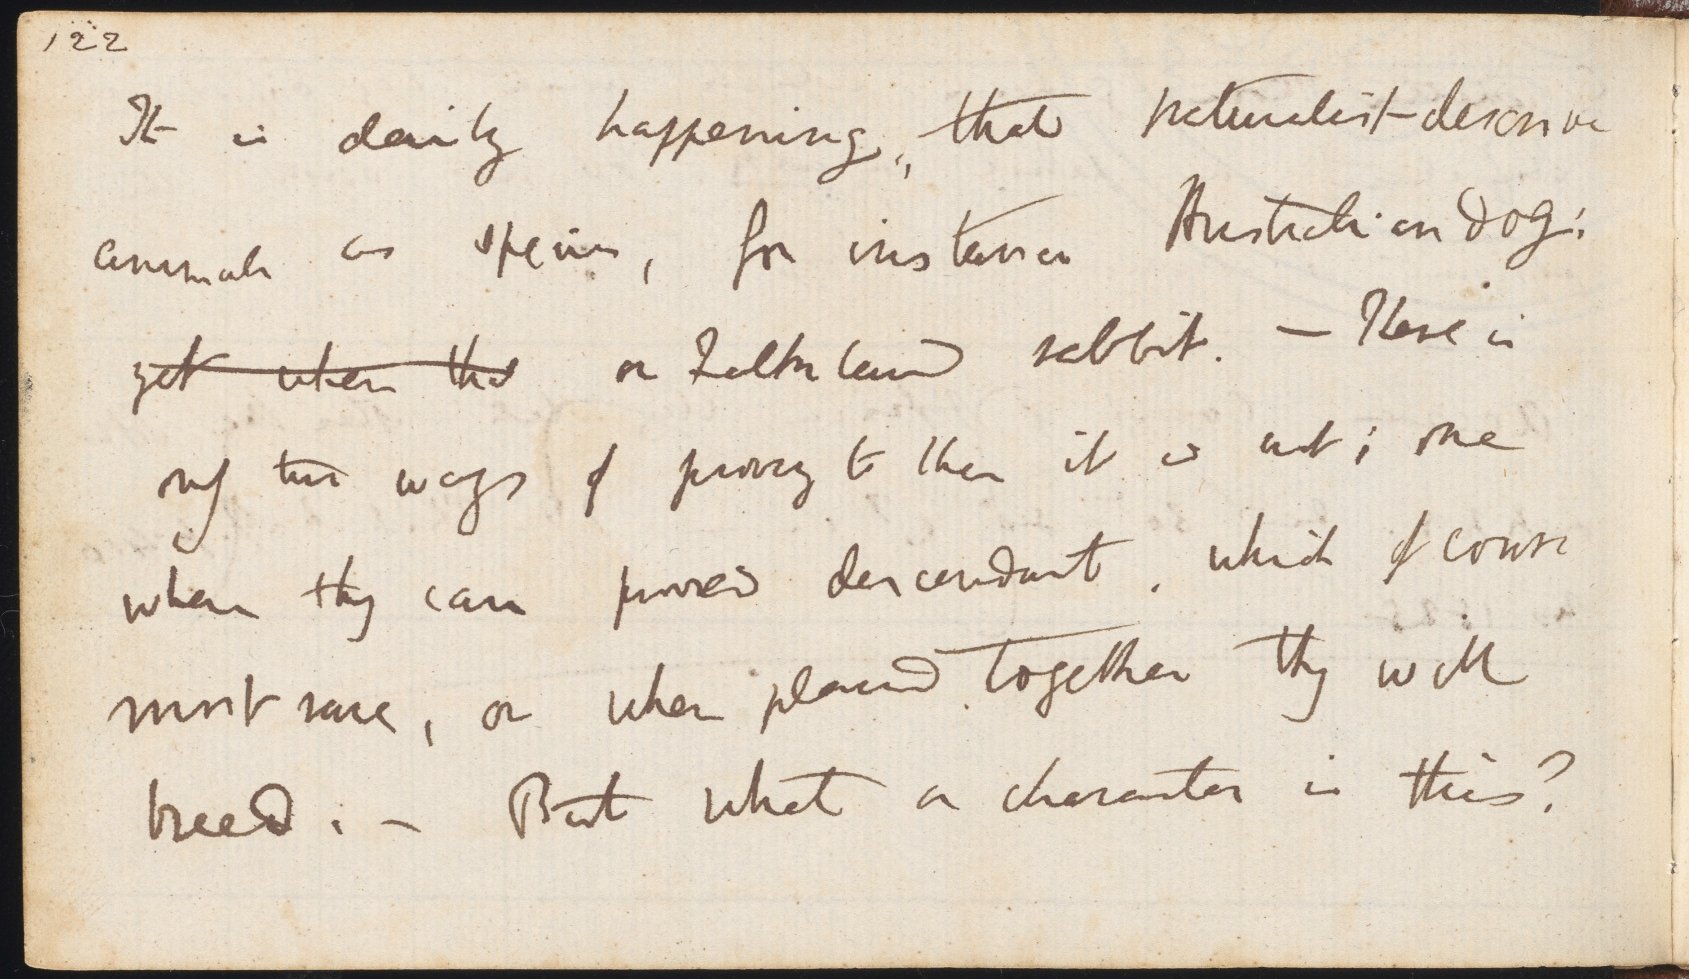 122
It is daily happening, that naturalist describe
animals as species, for instance Australian dog:
yet when the or Falkland rabbit. — There is
only two ways of proving to them it is not; one
when they can proved descendant, which of course
most rare, or when placed together they will
breed. — But what a character is this?